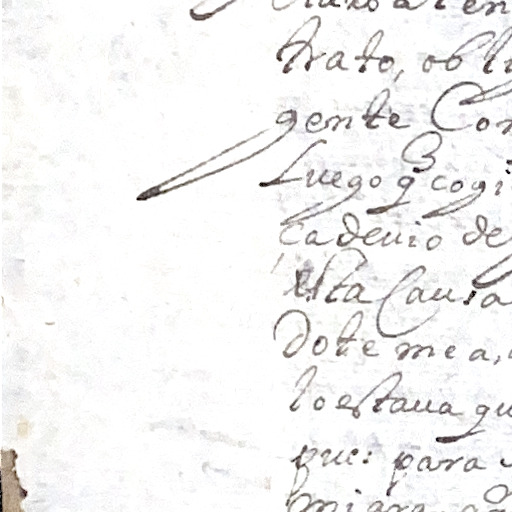 trato, obli
gente Con
Luego q̃ cogi
ca devio de
esta Causa
Dote mea,
lo estaua qu
pue: para